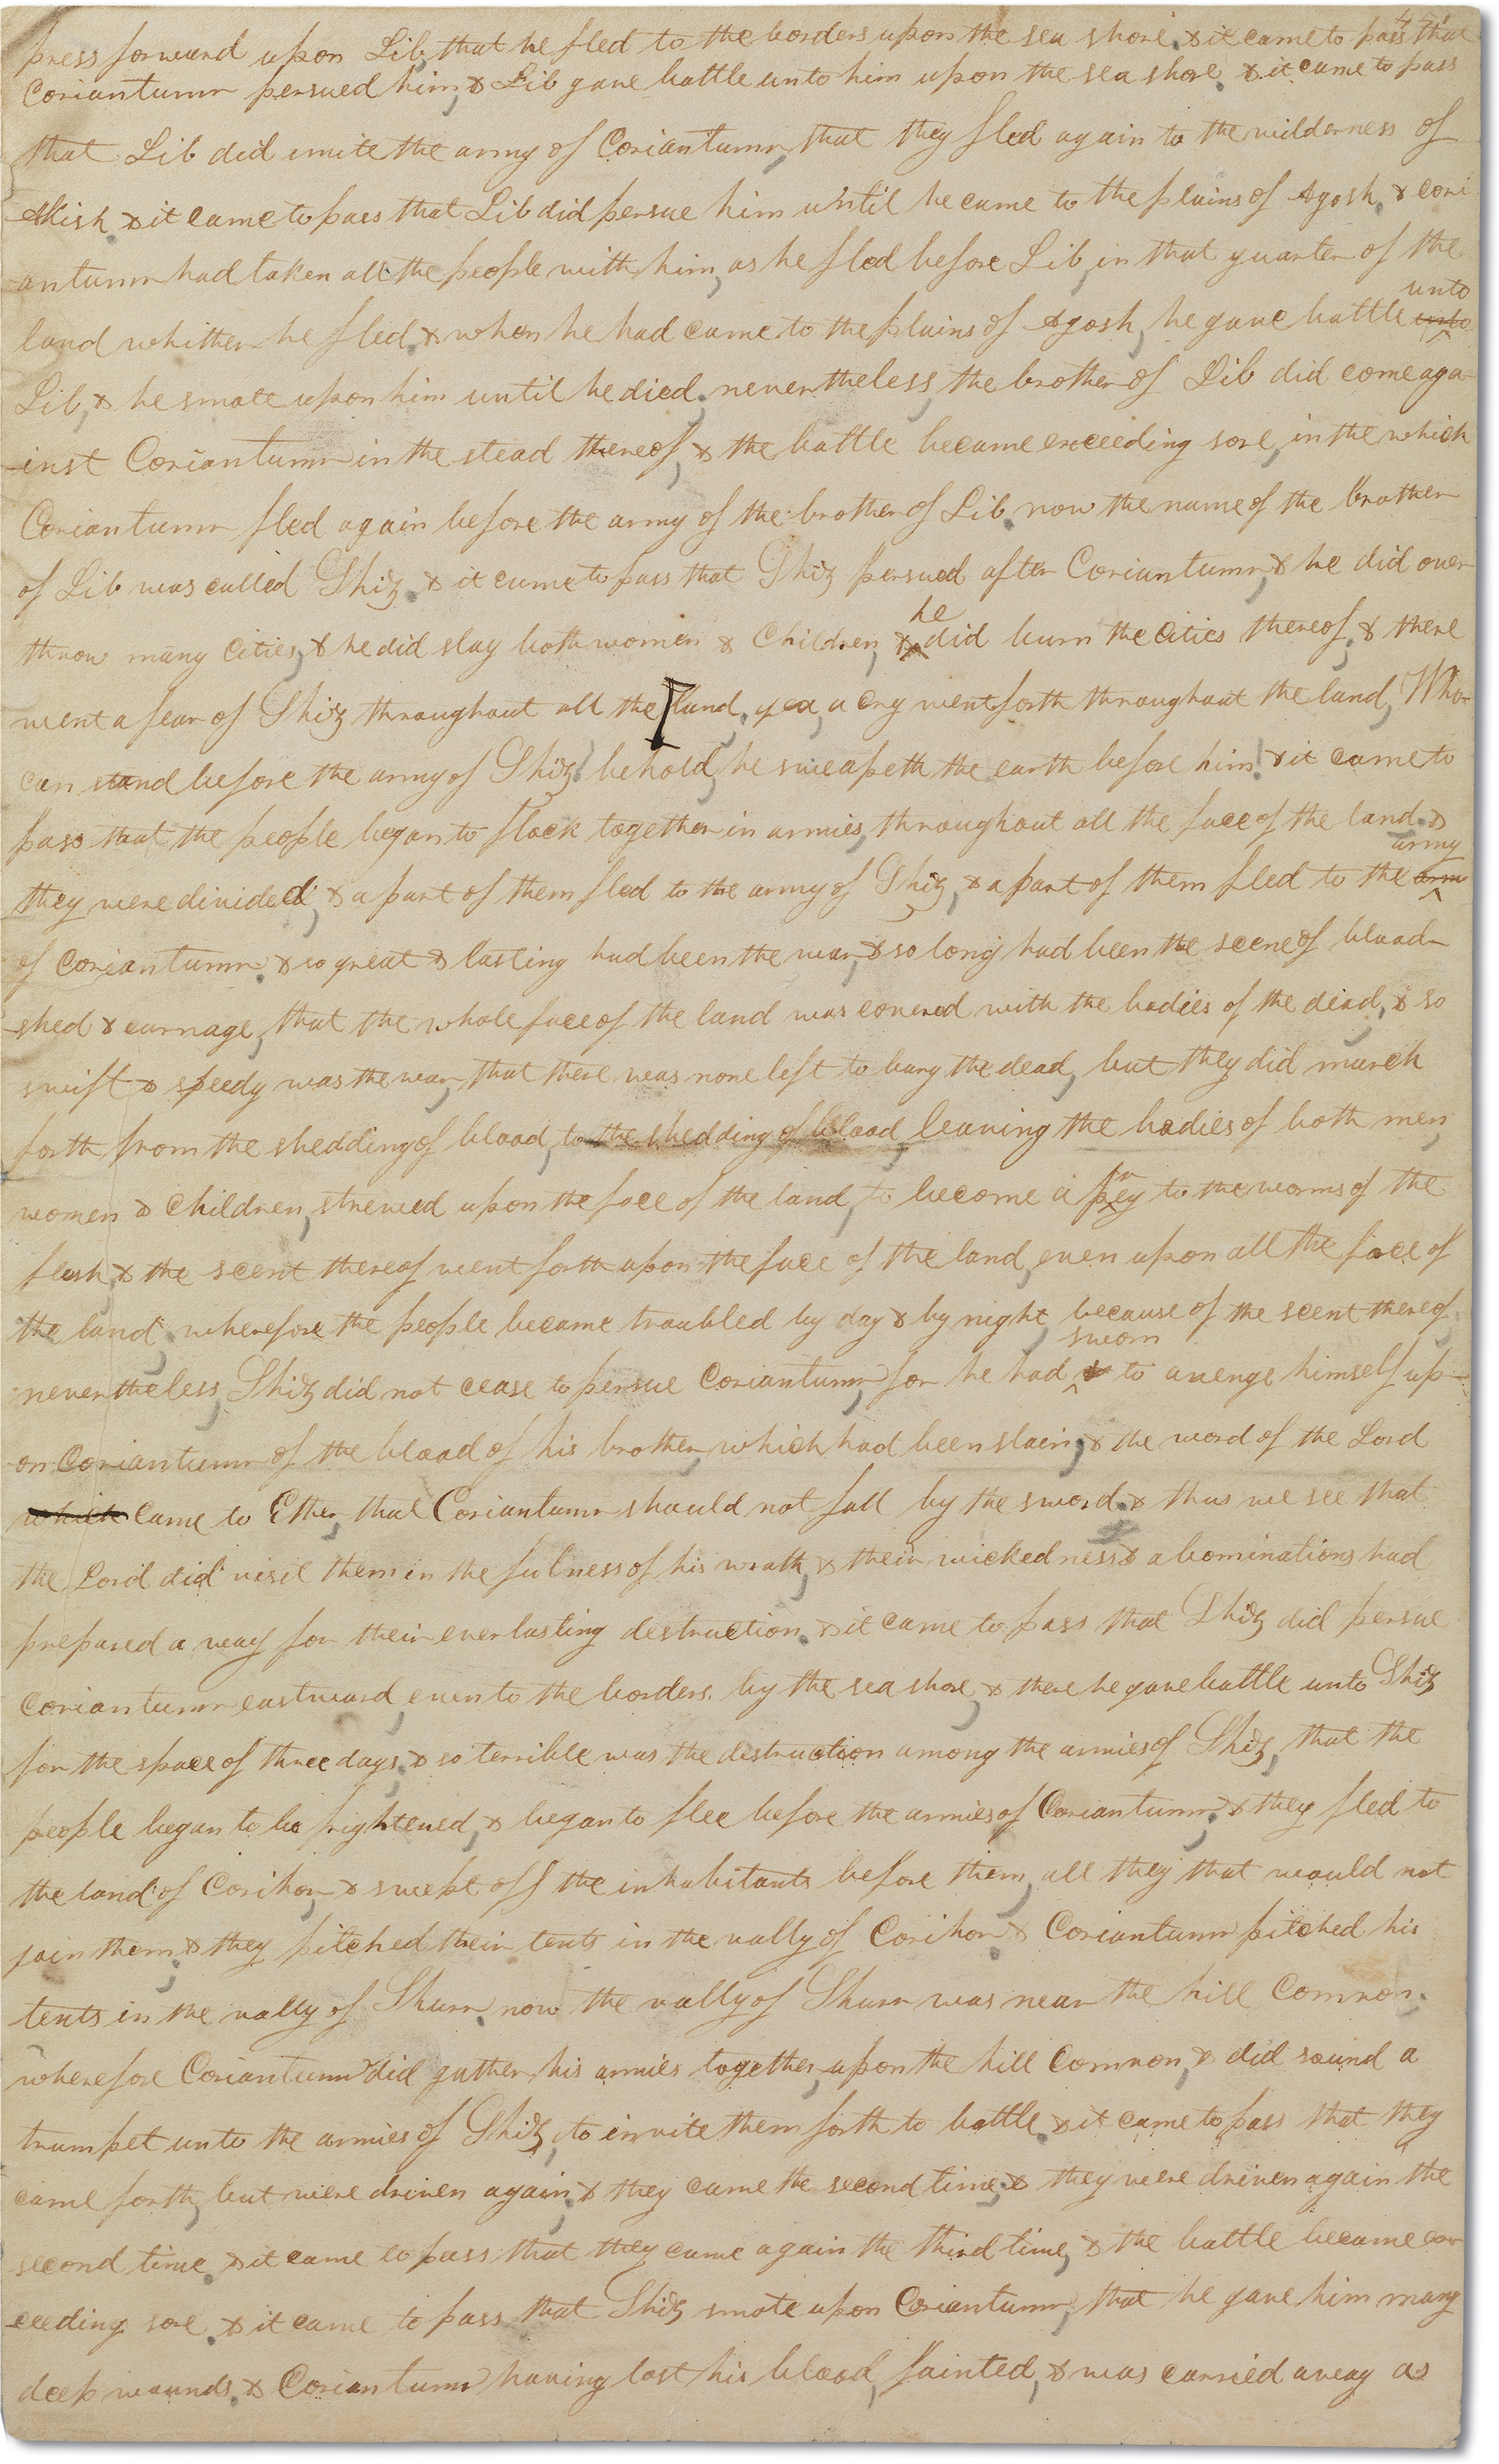 447
press forward upon Lib, that he fled to the borders upon the sea shore. & it came to pass that
Coriantumr persued him, & Lib gave battle unto him upon the sea shore. & it came to pass
that Lib did smite the army of Coriantumr, that they fled again to the wilderness of
Akish. & it came to pass that Lib did persue him until he came to the plains of Agosh. & cori
antumr had taken all the people with him, as he fled before Lib, in that quarter of the
land whither he fled. & when he had came to the plains of Agosh, he gave battle unto unto
Lib, & he smote upon him until he died. nevertheless, the brother of Lib did come aga-
inst Coriantumr in the stead thereof, & the battle became exceeding sore, in the which
Coriantumr fled again before the army of the brother of Lib. now the name of the brother
of Lib was called Shiz. & it came to pass that Shiz persued after Coriantumr, & he did over
throw many cities, & he did slay both women & Children, & he did burn the cities thereof, & there
went a fear of Shiz throughout all the land, yea, a cry went forth throughout the land, Who-
can stand before the army of Shiz! behold, he sweapeth the earth before him! & it came to
pass that the people began to flock together in armies, throughout all the face of the land. &
they were divided, & a part of them fled to the army of Shiz, & a part of them fled to the arm army
of Coriantumr. & so great & lasting had been the war, & so long had been the scene of blood-
shed & carnage, that the whole face of the land was covered with the bodies of the dead, & so
swift & speedy was the war, that there was none left to bury the dead, but they did march
forth from the shedding of blood, to the shedding of blood, leaving the bodies of both men,
women & children, strewed upon the face of the land, to become a prey to the worms of the
flesh, & the scent thereof went forth upon the face of the land, even upon all the face of
the land. wherefore the people became troubled by day & by night, because of the scent thereof,
nevertheless, Shiz did not cease to persue Coriantumr, for he had sworn to avenge himself up-
on Coriantumr of the blood of his brother, which had been slain, & the word of the Lord
which came to Ether, that Coriantumr should not fall by the sword. & thus we see that
the Lord did visit them in the fulness of his wrath, & their wickedness & abominations had
prepared a way for their everlasting destruction. & it came to pass that Shiz did persue
Coriantumr eastward, even to the borders by the sea shore, & there he gave battle unto Shiz
for the space of three days, & so terrible was the destruction among the armies of Shiz, that the
people began to be frightened, & began to flee before the armies of Coriantumr. & they fled to
the land of Corihor, & swept off the inhabitants before them, all they that would not
join them. & they pitched their tents in the vally of Corihor. & Coriantumr pitched his
tents in the vally of Shurr. now the vally of Shurr was near the hill Comnor.
wherefore Coriantumr did gather his armies together, upon the hill Comnor, & did sound a
trumpet unto the armies of Shiz, to invite them forth to battle. & it came to pass that they
came forth, but were driven again. & they came the second time. & they were driven again the
second time. & it came to pass that they came again the third time, & the battle became ex-
ceeding sore. & it came to pass that Shiz smote upon Coriantumr, that he gave him many
deep wounds. & Coriantumr having lost his blood, fainted, & was carried away as